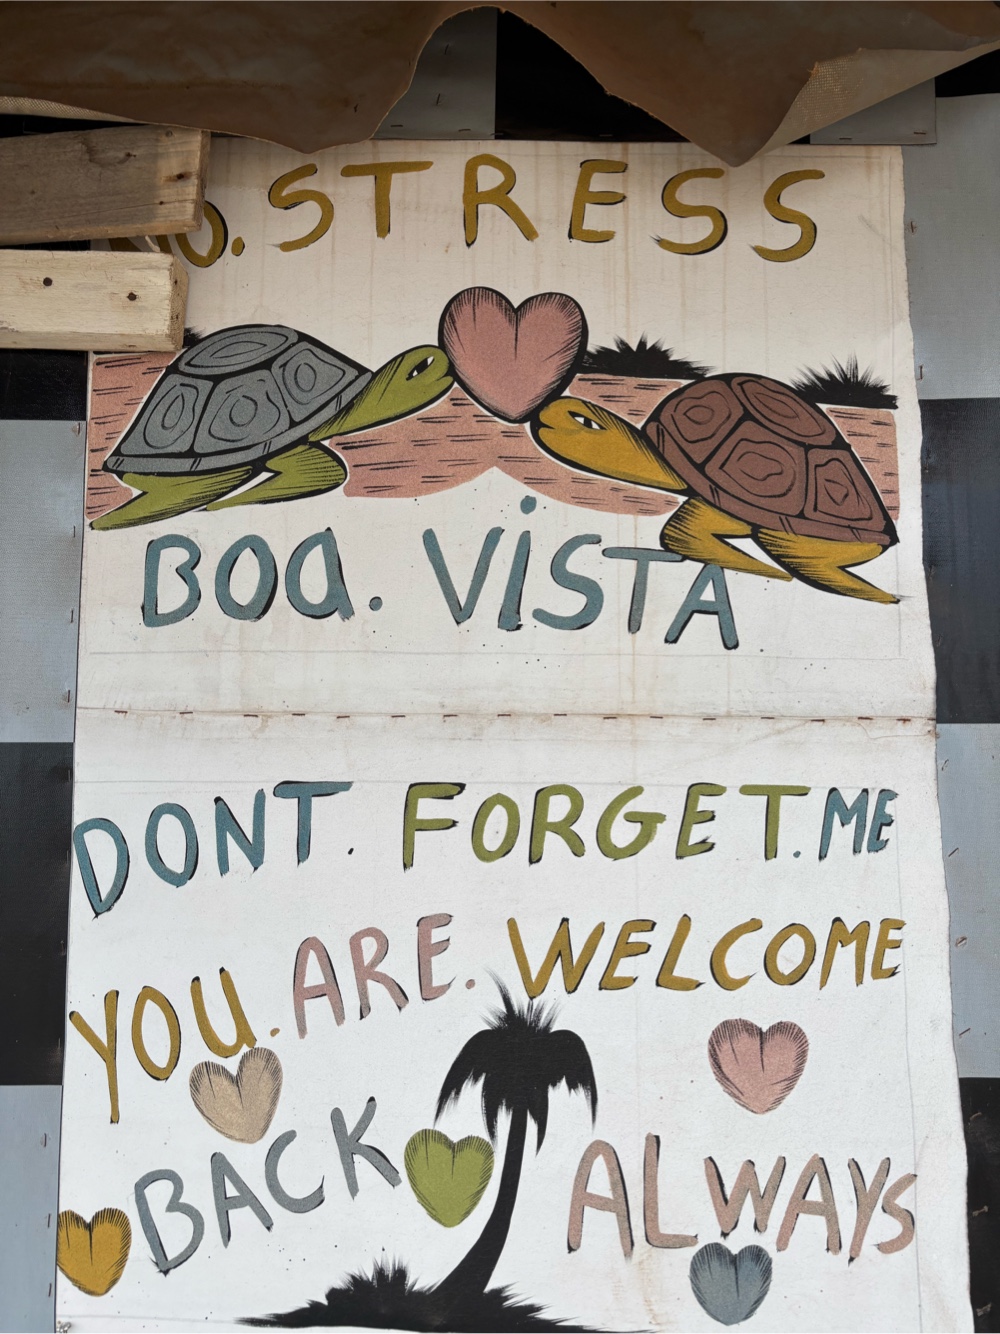 NO. STRESS
BOa. ViSTA
DONT. FORGET. ME
YOU. ARE. WELCOME
BACK ALWAYS